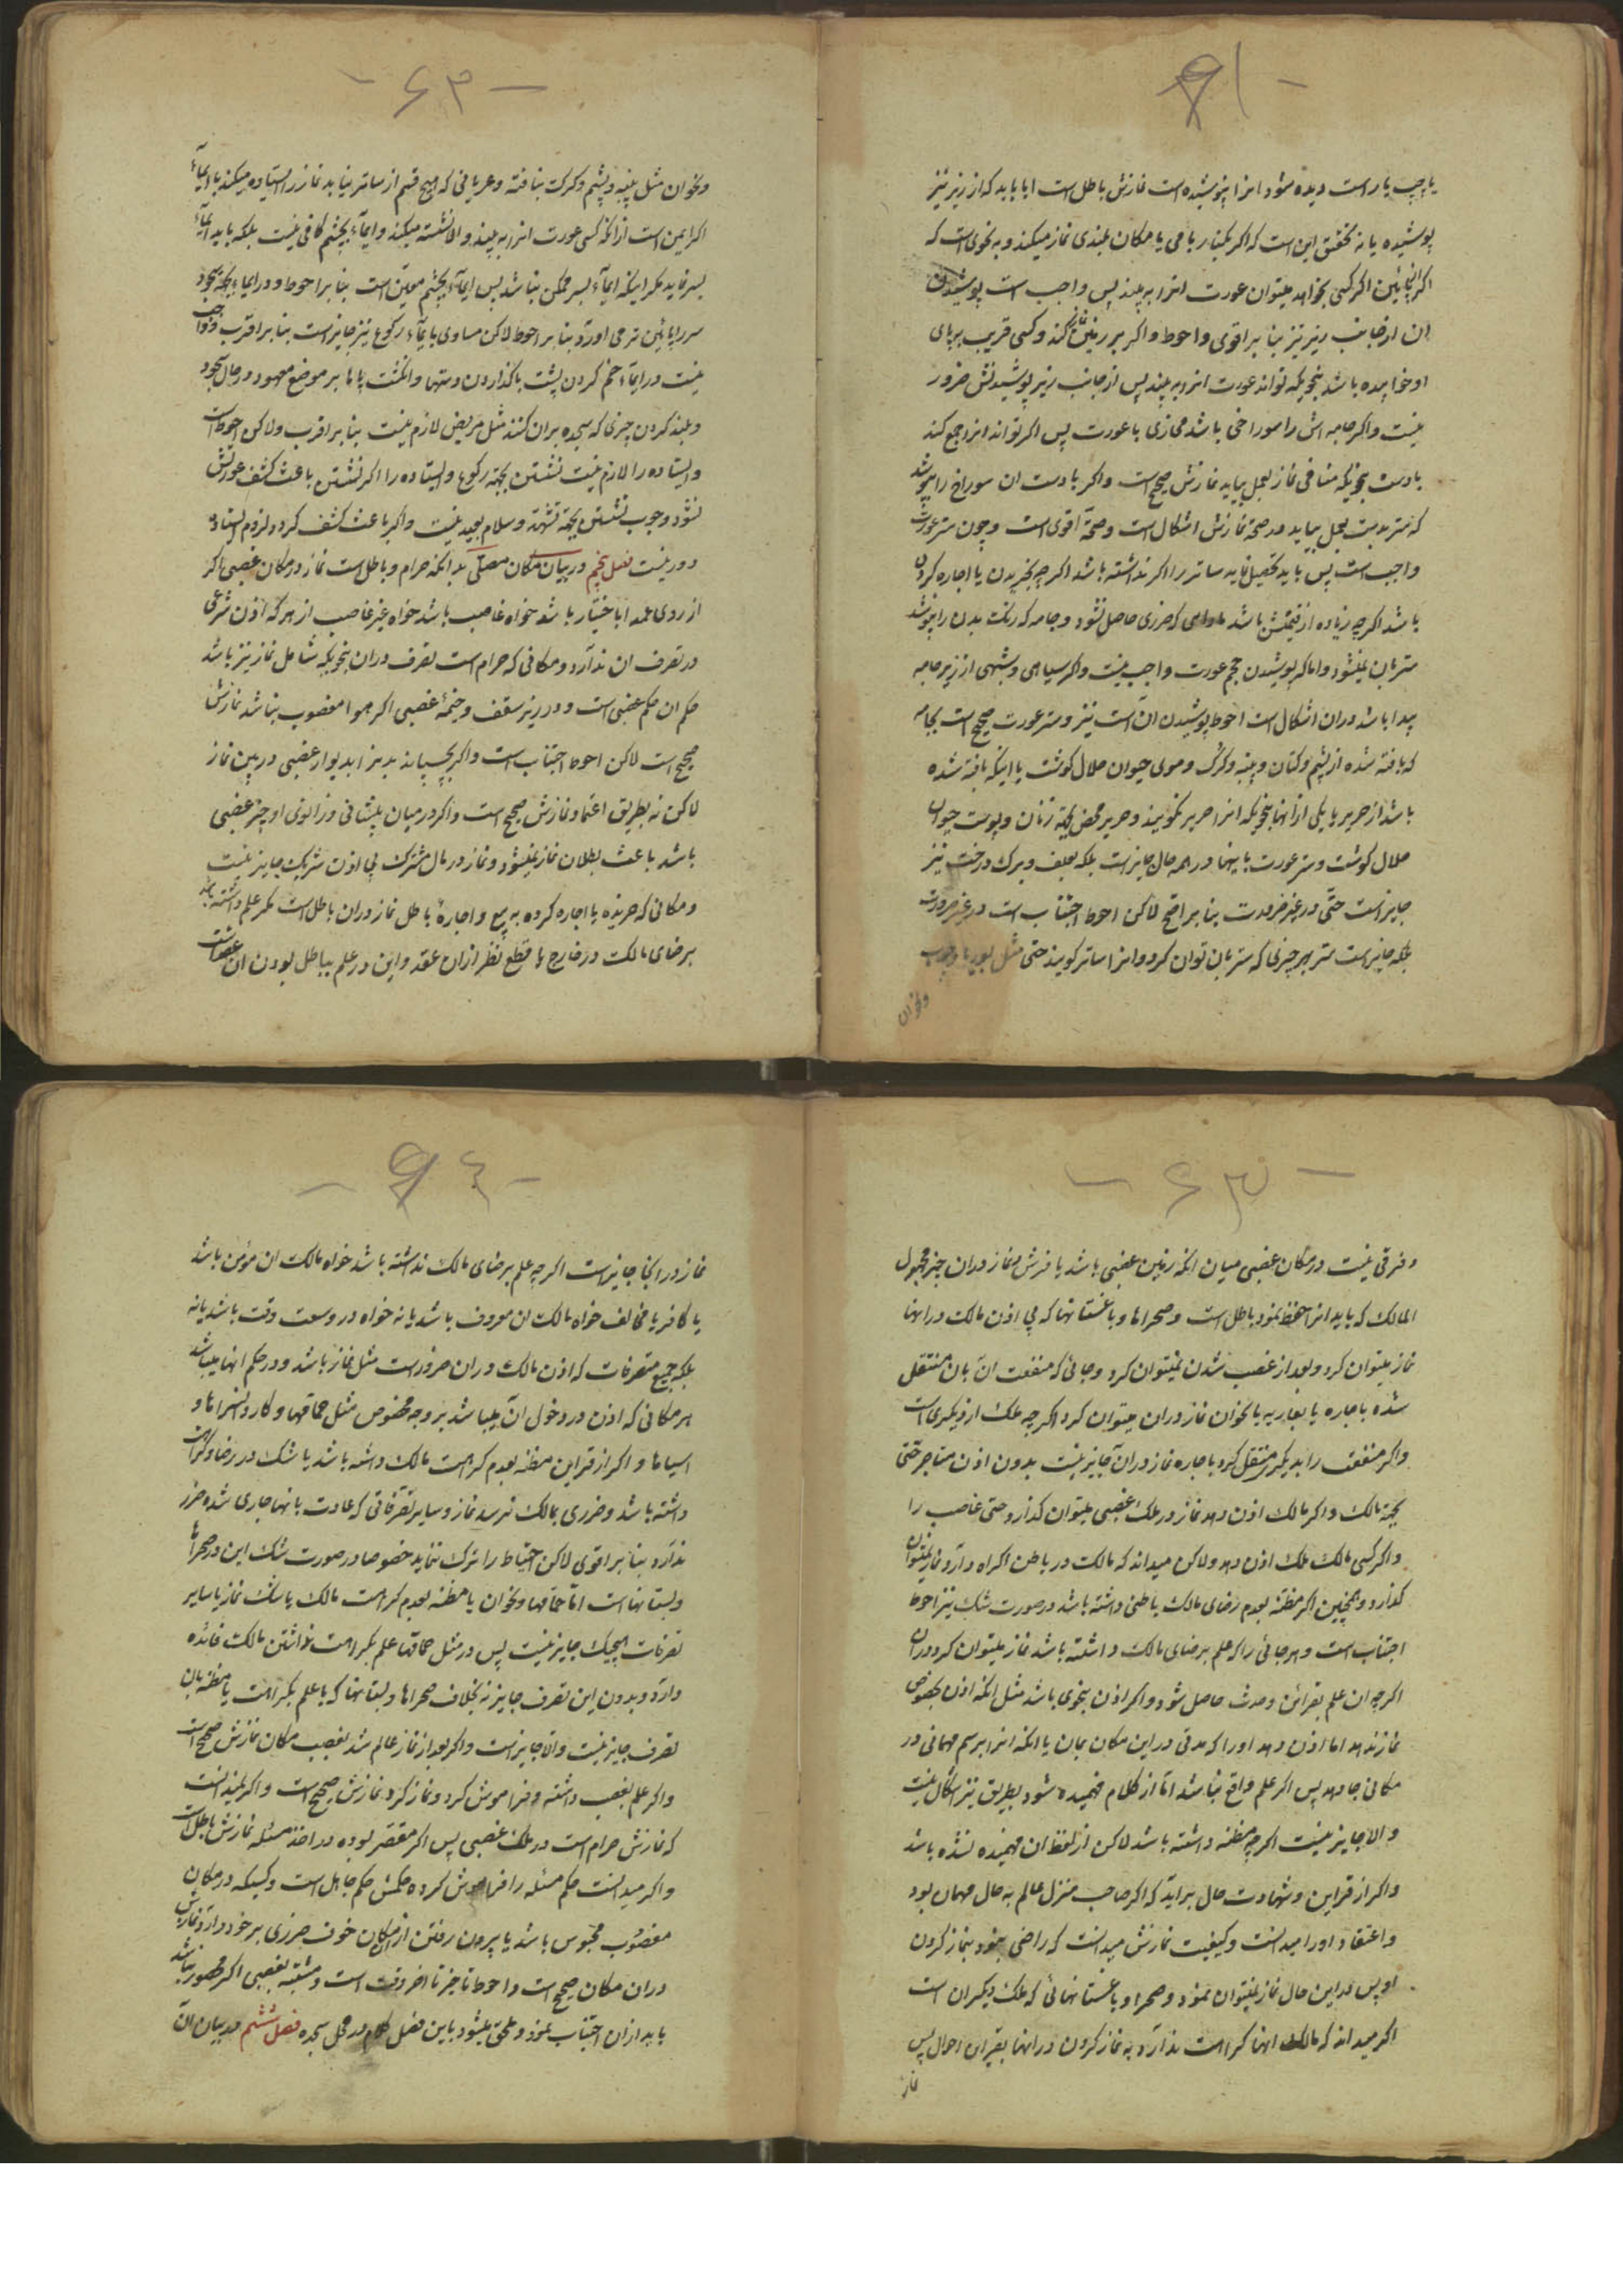 - ۶۱ -
یا چپ یا راست دیده شود انرا پوشیده است نمازش باطل است ایا باید که از زیر نیز
پوشیده یا نه تحقیق این است که اگر بکنار بامی یا مکان بلندی نماز میکند و بنحوی است که
اگر پائین اگر کسی بخواهد میتوان عورت انرا به بیند پس واجب است پوشیدن
ان از جانب زیر نیز بنا بر اقوی و احوط و اگر بر زمین نماز کند و کسی قریب بر پای
او خوابیده باشد بنحویکه تواند عورت انرا به بیند پس از جانب زیر پوشیدنش ضرور
نیست و اگر جامه اش را سوراخی باشد محاذی با عورت پس اگر تواند انرا جمع کند
بادست بنحویکه منافی نماز بعمل بیاید نمازش صحیح است و اگر با دست ان سوراخ را بپوشد
که ستر بدست بعمل بیاید در صحة نمازش اشکال است و صحة اقوی است و چون ستر عورت
واجب است پس باید تحصیل نماید ساتر را اگر نداشته باشد اگر چه بخریدن یا اجاره کردن
باشد اگر چه زیاده از قیمتش باشد مادامی که ضرری حاصل نشود و جامه که رنگ بدن را بپوشد
ستر بان میشود و اما که پوشیدن حجم عورت واجب نیست و اگر سیاهی و شبهی از زیر جامه
پیدا باشد دران اشکال است احوط پوشیدن ان است نیز و ستر عورت صحیح است بجامه
که بافته شده از پشم و کتان و پنبه و کرک و موی حیوان حلال گوشت یا اینکه بافته شده
باشد از حریر یا یکی از انها بنحویکه انرا حریر نگویند و حریر محض بجهة زنان و پوست حیوان
حلال گوشت و ستر عورت باینها در همه حال جایز است بلکه بعلف و برک درخت نیز
جایز است حتی در غیر ضرورت بنا بر اصح لاکن احوط اجتناب است در غیر ضرورت
بلکه جایز است ستر بهر چیزی که ستر بان توان کرد و انرا ساتر گویند حتی مثل بوریا و چوب
و نحو ان
- ۶۲ -
و نحو ان مثل پنبه و پشم و کرک بنافته و عریانی که هیچ قسم از ساتر نیابد نماز را ایستاده میکند با ایمآء
اگر ایمن است از انکه کسی عورت انرا به بیند والا نشسته میکند و ایمآء بچشم کافی نیست بلکه باید ایمآء
بسر نماید مگر اینکه ایمآء بسر ممکن نباشد پس ایمآء بچشم معین است بنا بر احوط و در ایماء بجهة سجود
سر را پائین تر می اورد بنا بر احوط لاکن مساوی با ایمآء رکوع نیز جایز است بنا بر اقرب و واجب
نیست در ایمآء خم کردن پشت یا گذاردن دستها و انگشت پاها بر موضع معهود در حال سجود
و بلند کردن چیزی که سجده بر ان کنند مثل مریض لازم نیست بنا بر اقرب ولاکن احوط است
و ایستاده را لازم نیست نشستن بجهة رکوع و ایستاده را اگر نشستن باعث کشف عورتش
نشود وجوب نشستن بجهة تشهد و سلام بعید نیست و اگر باعث کشف گردد لزوم ایستادن
دور نیست فصل پنجم در بیان مکان مصلّی بدانکه حرام و باطل است نماز در مکان غصبی اگر
از روی عمد اباختیار باشد خواه غاصب باشد خواه غیر غاصب از هر که اذن شرعی
در تصرف ان ندارد و مکانی که حرام است تصرف دران بنحویکه شامل نماز نیز باشد
حکم ان حکم غصبی است و در زیر سقف و خیمۀ غصبی اگر هوا مغصوب نباشد نمازش
صحیح است لاکن احوط اجتناب است و اگر بچسپاند بدنرا بدیوار غصبی در بین نماز
لاکن نه بطریق اعتماد نمازش صحیح است و اگر در میان پیشانی و زانوی او چیز غصبی
باشد باعث بطلان نماز نمیشود و نماز در مال مشترک بی اذن شریک جایز نیست
و مکانی که خریده یا اجاره کرده به بیع و اجارۀ باطل نماز دران باطل است مگر علم داشته باشد
برضای مالک در خارج با قطع نظر ازان عقد و این در علم بباطل بودن ان عقد است
- ۶۳ -
و فرقی نیست در مکان غصبی میان انکه زمین غصبی باشد یا فرش و نماز دران چیز مجهول
المالک که باید انرا حفظ نمود باطل است و صحراها و باغستانها که بی اذن مالک در انها
نماز میتوان کرد و بعد از غصب شدن نمیتوان کرد و جائی که منفعت ان بان منتقل
شده باجاره یا بعاریه یا نحو ان نماز دران میتوان کرد اگر چه ملک از دیگری است
و اگر منفعت را بدیگری منتقل کرد باجاره نماز دران جایز نیست بدون اذن مستاجر حتّی
بجهة مالک و اگر مالک اذن دهد نماز در ملک غصبی میتوان گذارد حتی غاصب را
و اگر کسی مالک ملک اذن دهد ولاکن میداند که مالک در باطن اکراه دارد نماز نمیتوان
گذارد و همچنین اگر مظنّه بعدم رضای مالک باطنی داشته باشد در صورت شک نیز احوط
اجتناب است و هر جائی را که علم برضای مالک داشته باشد نماز میتوان کرد دران
اگر چه ان علم بقرائن و حدس حاصل شود و اگر اذن بنحوی باشد مثل انکه اذن بخصوص
نماز ندهد اما اذن دهد او را که مدتی در این مکان بمان یا انکه انرا برسم مهمانی در
مکانی جا دهد پس اگر علم واقع نباشد امّا از کلام فهمیده شود بطریق نیز اشکال نیست
والا جایز نیست اگر چه مظنّه داشته باشد لاکن از لفظ ان فهمیده نشده باشد
و اگر از قراین و شهادت حال براید که اگر صاحب منزل عالم به حال مهمان بود
و اعتقاد او را میدانست و کیفیت نمازش میدانست که راضی نبود بنماز کردن
او پس در این حال نماز نمیتوان نمود و صحرا و باغستانهائی که ملک دیگران است
اگر میداند که مالک انها کراهت ندارد به نماز کردن در انها بقراین احوال پس
نماز
- ۶۴ -
نماز در انجا جایز است اگر چه علم برضای مالک نداشته باشد خواه مالک ان مؤمن باشد
یا کافر یا مخالف خواه مالک ان معروف باشد یا نه خواه در وسعت وقت باشد یا نه
بلکه جمیع متصرفات که اذن مالک دران ضرور است مثل نماز باشد و در حکم انها میباشد
هر مکانی که اذن در دخول ان میباشد بر وجه مخصوص مثل حمامها و کاروانسراها و
اسیاها و اگر از قراین مظنّه بعدم کراهت مالک داشته باشد یا شک در رضا و کراهت
داشته باشد و ضرری بمالک نرسد نماز و سایر تصرّفاتی که عادت بانها جاری شده ضرر
ندارد بنا بر اقوی لاکن احتیاط را ترک ننماید خصوصا در صورت شک این در صحراها
و بستانهاست امّا حمّامها و نحو ان یا مظنّه بعدم کراهت مالک یا شک نماز یا سایر
تصرفات هیچیک جایز نیست پس در مثل حمامها علم بکراهت نداشتن مالک فائده
دارد و بدون این تصرف جایز نه بخلاف صحراها و بستانها که با علم بکراهت یا مظنّه بان
تصرف جایز نیست والا جایز است و اگر بعد از نماز عالم شد بغصب مکان نمازش صحیح است
و اگر علم بغصب داشته و فراموش کرد و نماز کرد نمازش صحیح است و اگر نمیدانست
که نمازش حرام است در ملک غصبی پس اگر مقصّر بوده در اخذ مسئله نمازش باطل است
و اگر میدانست حکم مسئله را فراموش کرده حکمش حکم جاهل است و کسیکه در مکان
مغصوب محبوس باشد یا بیرون رفتن از مکان خوف ضرری بر خود دارد نمازش
دران مکان صحیح است و احوط تاخیر تا اخر وقت است و مشتبه بغصبی اگر محصور باشد
باید ازان اجتناب نمود و ملحق میشود باین فصل کلام در محل سجده فصل ششم در بیان ان